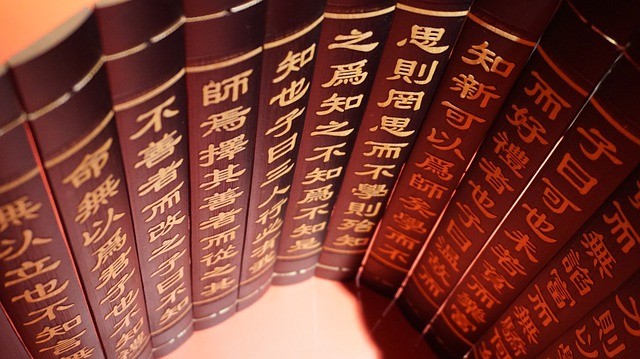 而無諂富而無
子曰可也未若貧而樂富
而好禮者也子曰溫故而
知新可以爲師矣學而不
思則罔思而不學則殆知
之爲知之不知爲不知是
知也子曰三人行必有我
師焉擇其善者而從之其
不善者而改之子曰不知
命無以爲君子也不知禮
無以立也不知言無